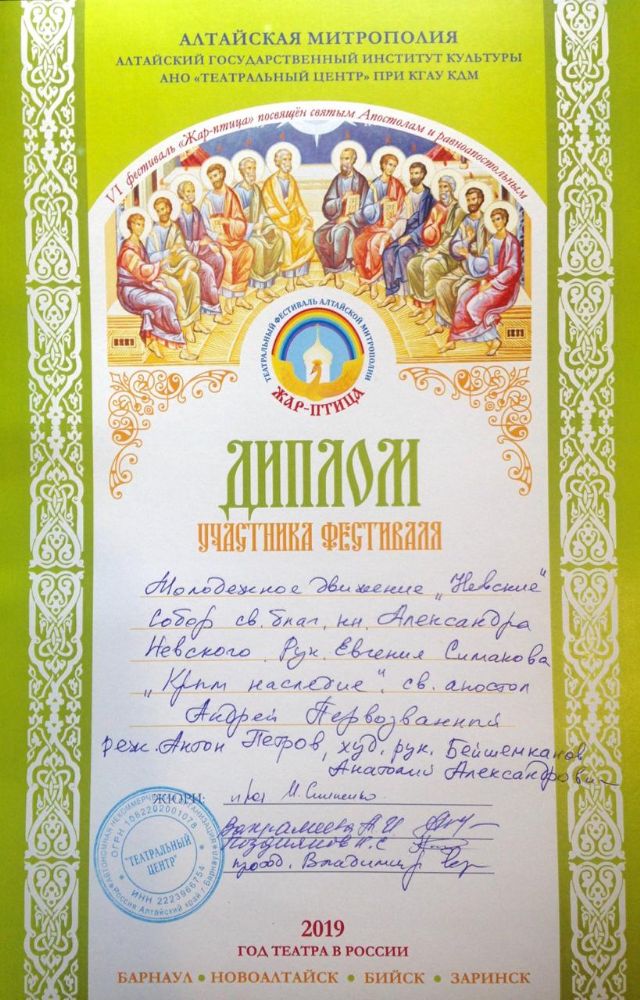 АЛТАЙСКАЯ МИТРОПОЛИЯ
АЛТАЙСКИЙ ГОСУДАРСТВЕННЫЙ ИНСТИТУТ КУЛЬТУРЫ
АНО «ТЕАТРАЛЬНЫЙ ЦЕНТР» ПРИ КГАУ КДМ
VI фестиваль «Жар-птица» посвящён святым Апостолам и равноапостольным
ТЕАТРАЛЬНЫЙ ФЕСТИВАЛЬ АЛТАЙСКОЙ МИТРОПОЛИИ
ЖАР-ПТИЦА
ДИПЛОМ
УЧАСТНИКА ФЕСТИВАЛЯ
Молодежное движение „Невские"
Собор св. благ. кн. Александра
Невского. Рук. Евгения Симакова
„Крым наследие", св. апостол
Андрей Первозванный
реж. Антон Петров, худ. рук. Бейшемканов
Анатолий Александрович
ЖЮРИ: прот М.
Вахрамеева А И
Поздняков
прот. Владимир
АВТОНОМНАЯ НЕКОММЕРЧЕСКАЯ ОРГАНИЗАЦИЯ
ОГРН 1062202001078
"ТЕАТРАЛЬНЫЙ
ЦЕНТР"
ИНН 2223966754
Россия Алтайский край г Барнаул
2019
ГОД ТЕАТРА В РОССИИ
БАРНАУЛ • НОВОАЛТАЙСК • БИЙСК • ЗАРИНСК